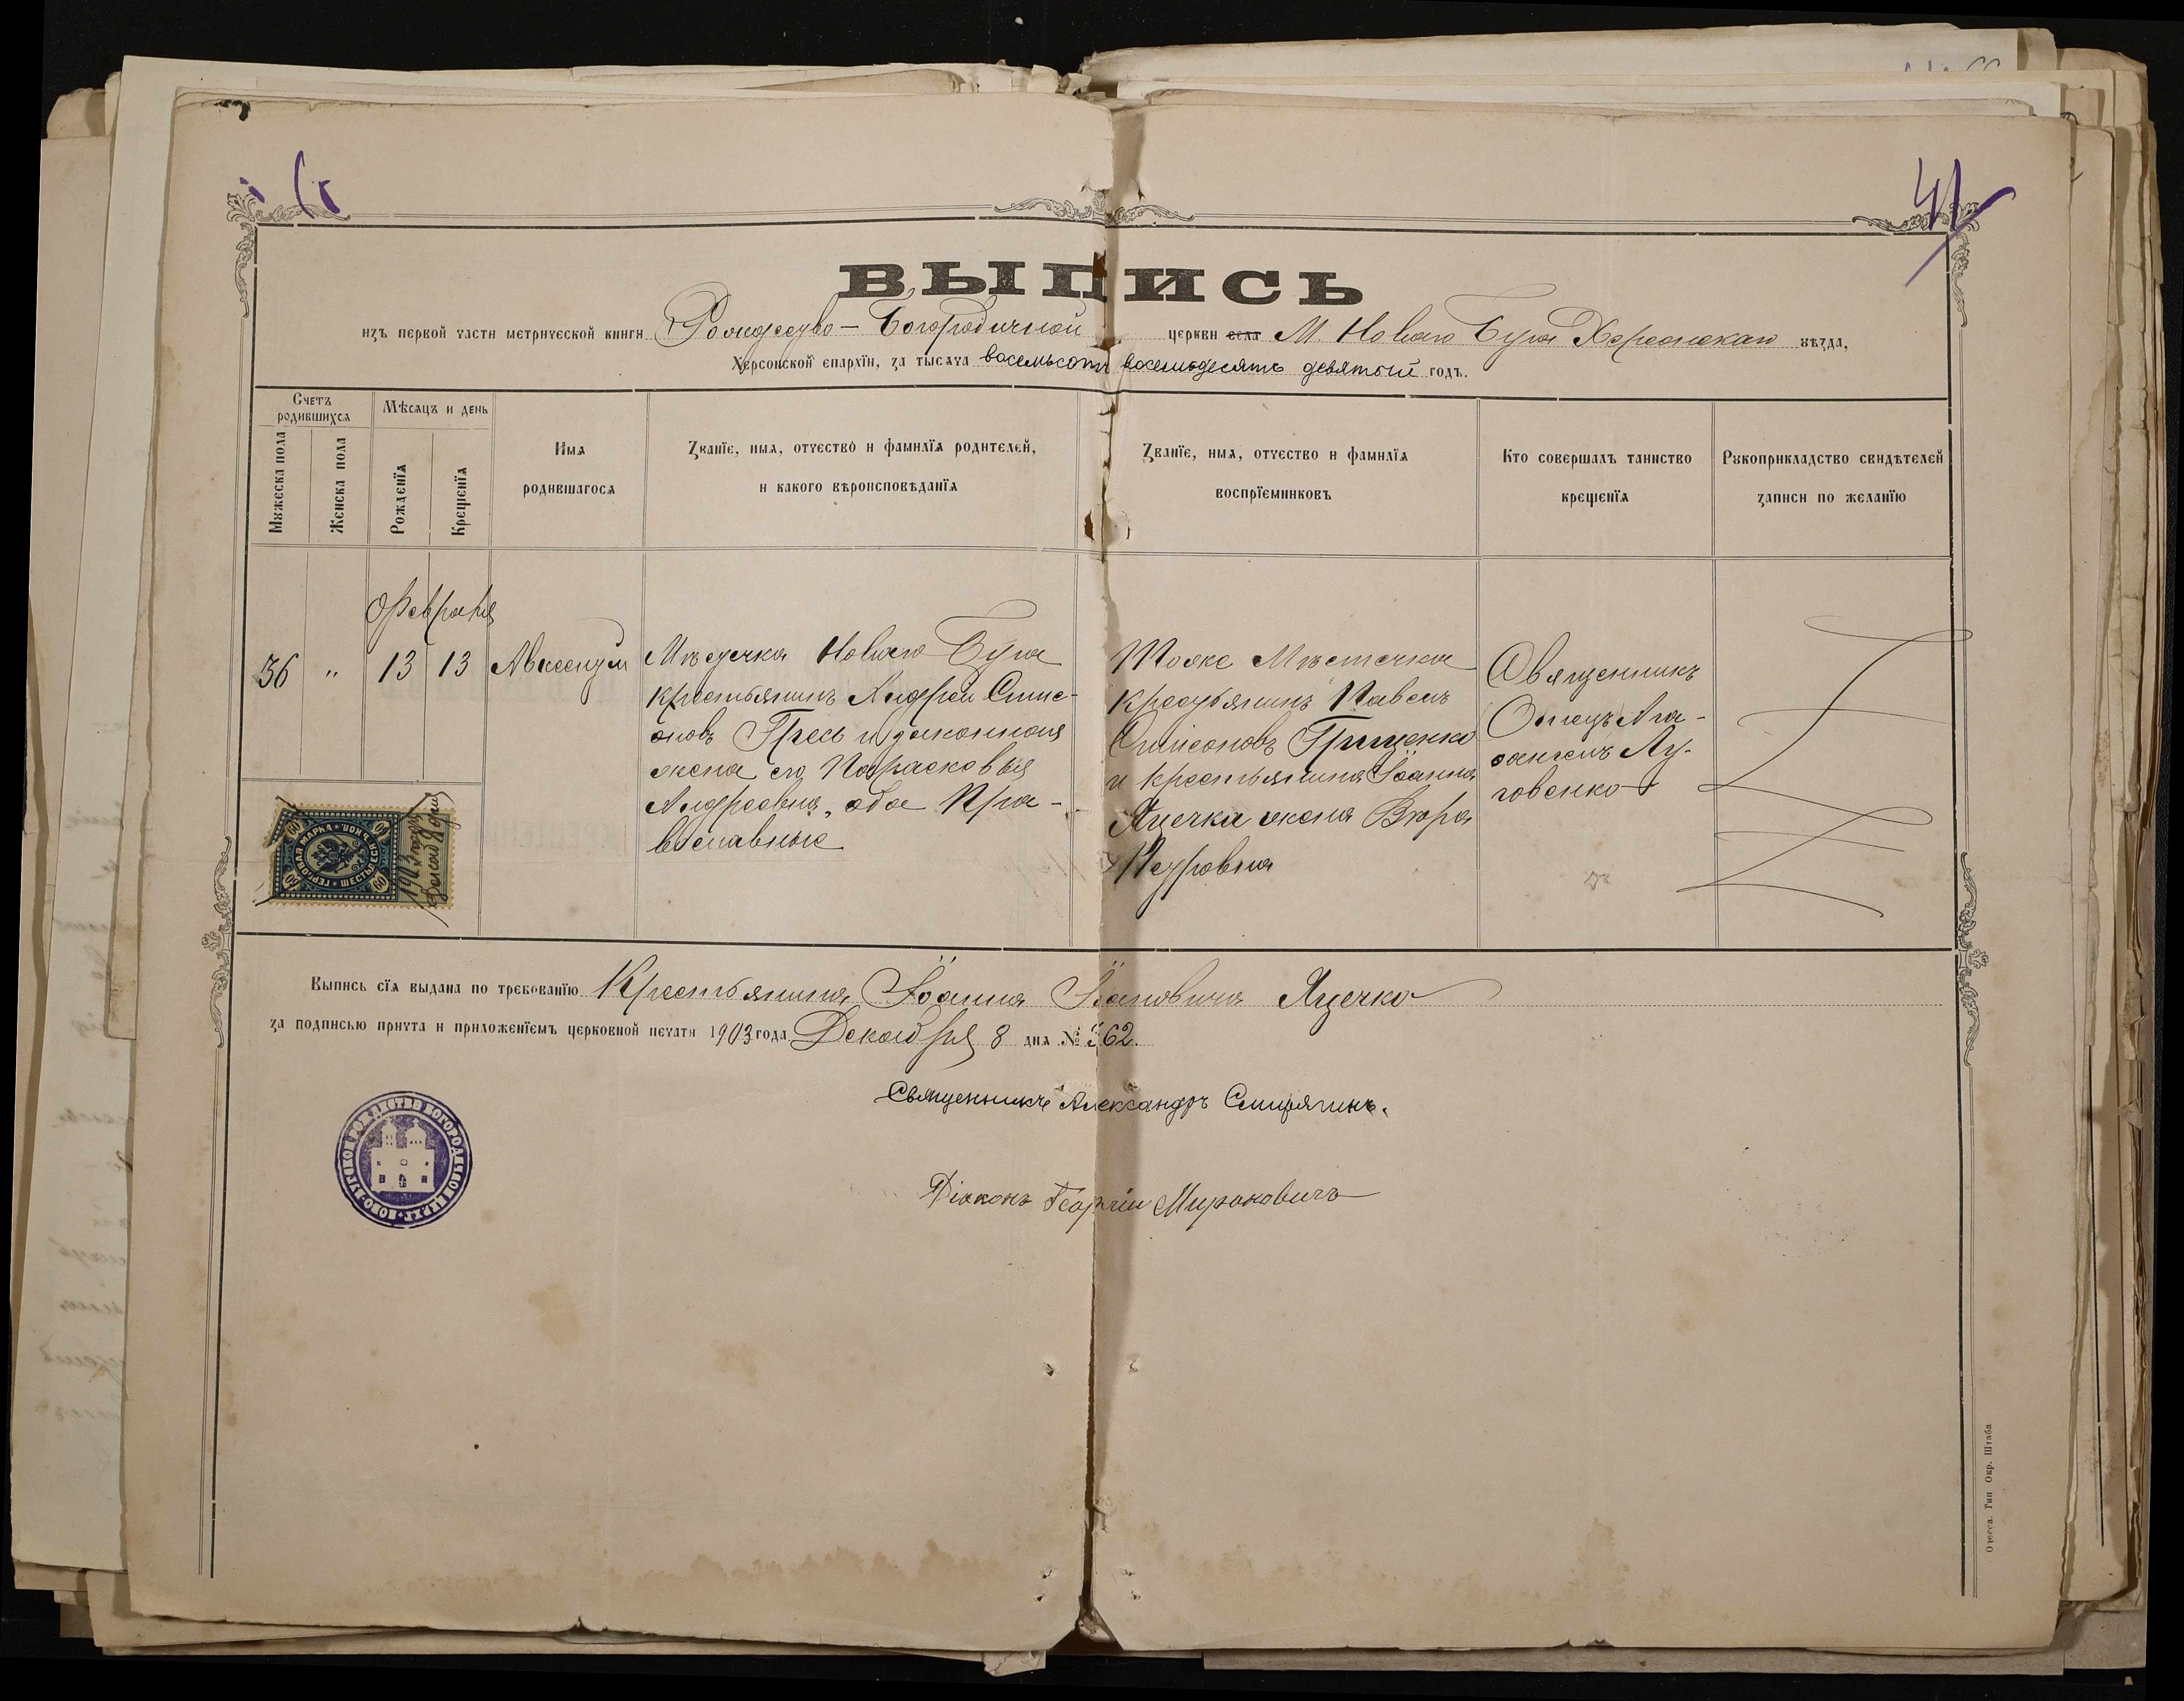 41
ВЫПИСЬ
изъ первой части метрической книги Рождество-Богородичной церкви села М. Новаго Буга Херсонскаго уѣзда,
Херсонской епархїи, за тысяча восемьсотъ восемьдесятъ девятый годъ.
Счетъ родившихся
Мужеска пола
Женска пола
Мѣсяцъ и день
Рожденїя
Крещенїя
Имя
родившагося
Званїе, имя, отчество и фамилїя родителей,
и какого вѣроисповѣданїя
Званїе, имя, отчество и фамилїя
воспрїемниковъ
Кто совершалъ таинство
крещенїя
Рукоприкладство свидѣтелей
записи по желанїю
Февраля
36 " 13 13
Авксентїй
Мѣстечка Новаго Буга
крестьянинъ Андрей Симе-
оновъ и законная
жена его Парасковья
Андреевна, обое Пра-
вославные
Тоже Мѣстечка
Крестьянинъ Павелъ
Симеоновъ Грищенко
и крестьянина Іоанна
Яцечка жена Вѣра
Петровна
Священникъ
Отецъ Ага-
фангелъ Лу-
говенко
ГЕРБОВАЯ МАРКА • ШЕСТЬДЕСЯТЪ КОП.
60 60 60 60
1903 года
Декаб 8 дня
Выпись сїя выдана по требованїю Крестьянина Іоанна Іоановича Яцечко
за подписью причта и приложенїемъ церковной печати 1903 года Декабря 8 дня № 362.
Священникъ Александръ
Дїаконъ Георгїй Мироновичъ
Одесса. Тип. Окр. Штаба